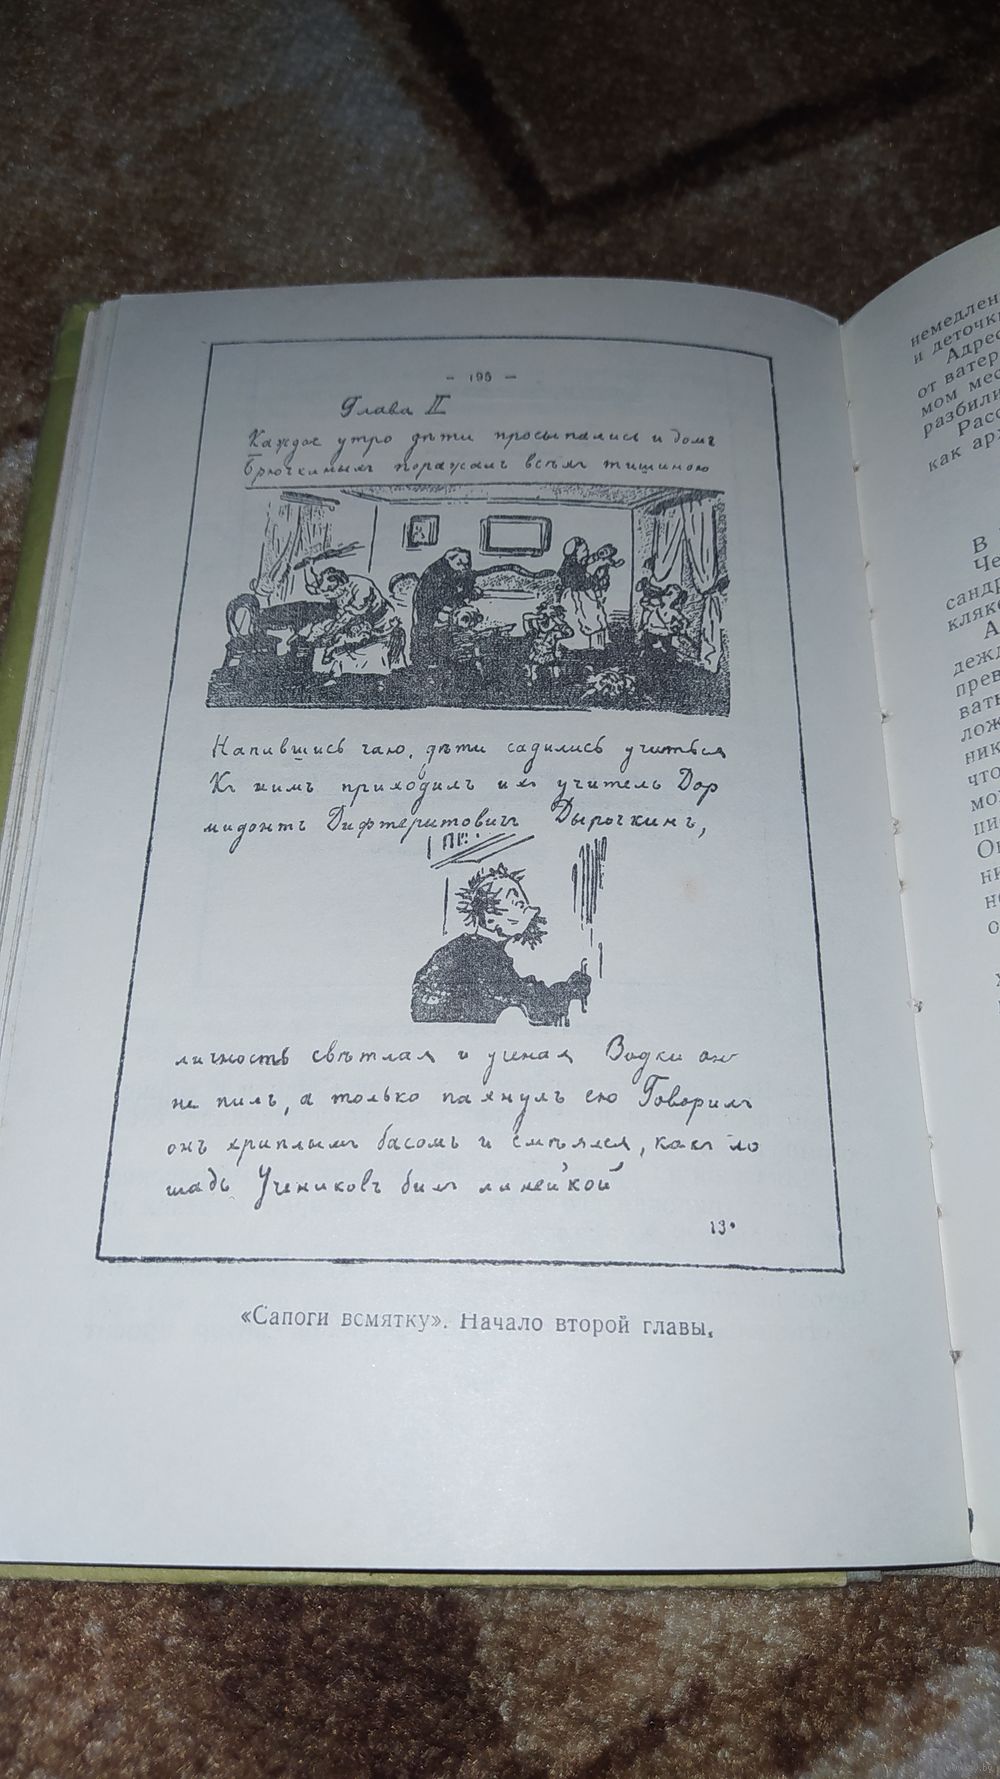 – 195 –
Глава II
Каждое утро дѣти просыпались и домъ
Брючкиныхъ поражалъ всѣхъ тишиною
Напившись чаю, дѣти садились учиться
Къ нимъ приходилъ ихъ учитель Дор
мидонтъ Дифтеритовичъ Дырочкинъ,
личность свѣтлая и ученая Водки онъ
не пилъ, а только пахнулъ ею Говорилъ
онъ хриплымъ басомъ и смѣялся, какъ ло
шадь Учениковъ билъ линейкой
13*
«Сапоги всмятку». Начало второй главы.
немедлен
и деточк
Адрес
от ватер
мом мес
разбили
Расс
как ар
В
Че
санд
кляк
А
деж
прев
ват
лож
ник
что
мо
пи
О
ни
н
о